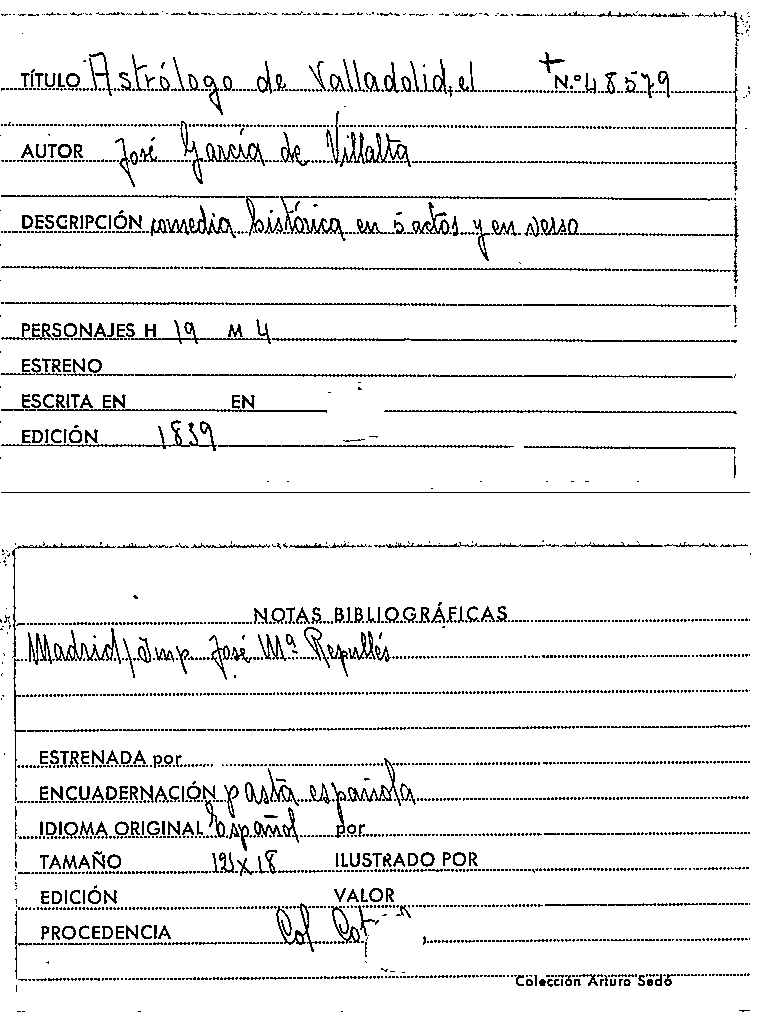 TÍTULO Astrólogo de Valladolid, el N.º 48579
AUTOR José García de Villalta
DESCRIPCIÓN comedia histórica en 5 actos y en verso
PERSONAJES H 19 M 4
ESTRENO
ESCRITA EN EN
EDICIÓN 1839
NOTAS BIBLIOGRÁFICAS
Madrid/Imp. José Mª Repullés
ESTRENADA por
ENCUADERNACIÓN pasta española
IDIOMA ORIGINAL Español por
TAMAÑO X 18 ILUSTRADO POR
EDICIÓN VALOR
PROCEDENCIA Col
Colección Arturo Sedó